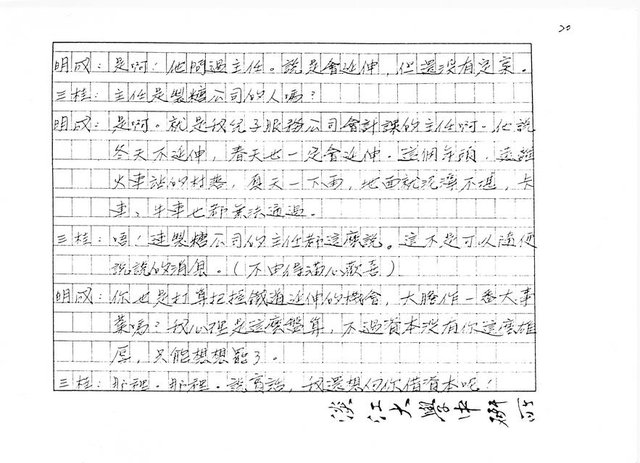 20
明成：是啊！他問過主任。說是會延伸，但還沒有定案。
三桂：主任是製糖公司的人嗎？
明成：是啊。就是我兒子服務公司會計課的主任啊。他說
冬天不延伸，春天也一定會延伸。這個年頭，遠離
火車站的村落，夏天一下雨，地面就泥濘不堪，卡
車、牛車也都無法通過。
三桂：唔！連製糖公司的主任都這麼說。這不是可以隨便
說說的消息。（不由得滿心歡喜）
明成：你也是打算把握鐵道延伸的機會，大勝作一番大事
業嗎？我心裡是這麼盤算，不過資本沒有你這麼雄
厚，只能想想罷了。
三桂：那裡，那裡。說實話，我還想向你借資本呢！
淡江大學中研所